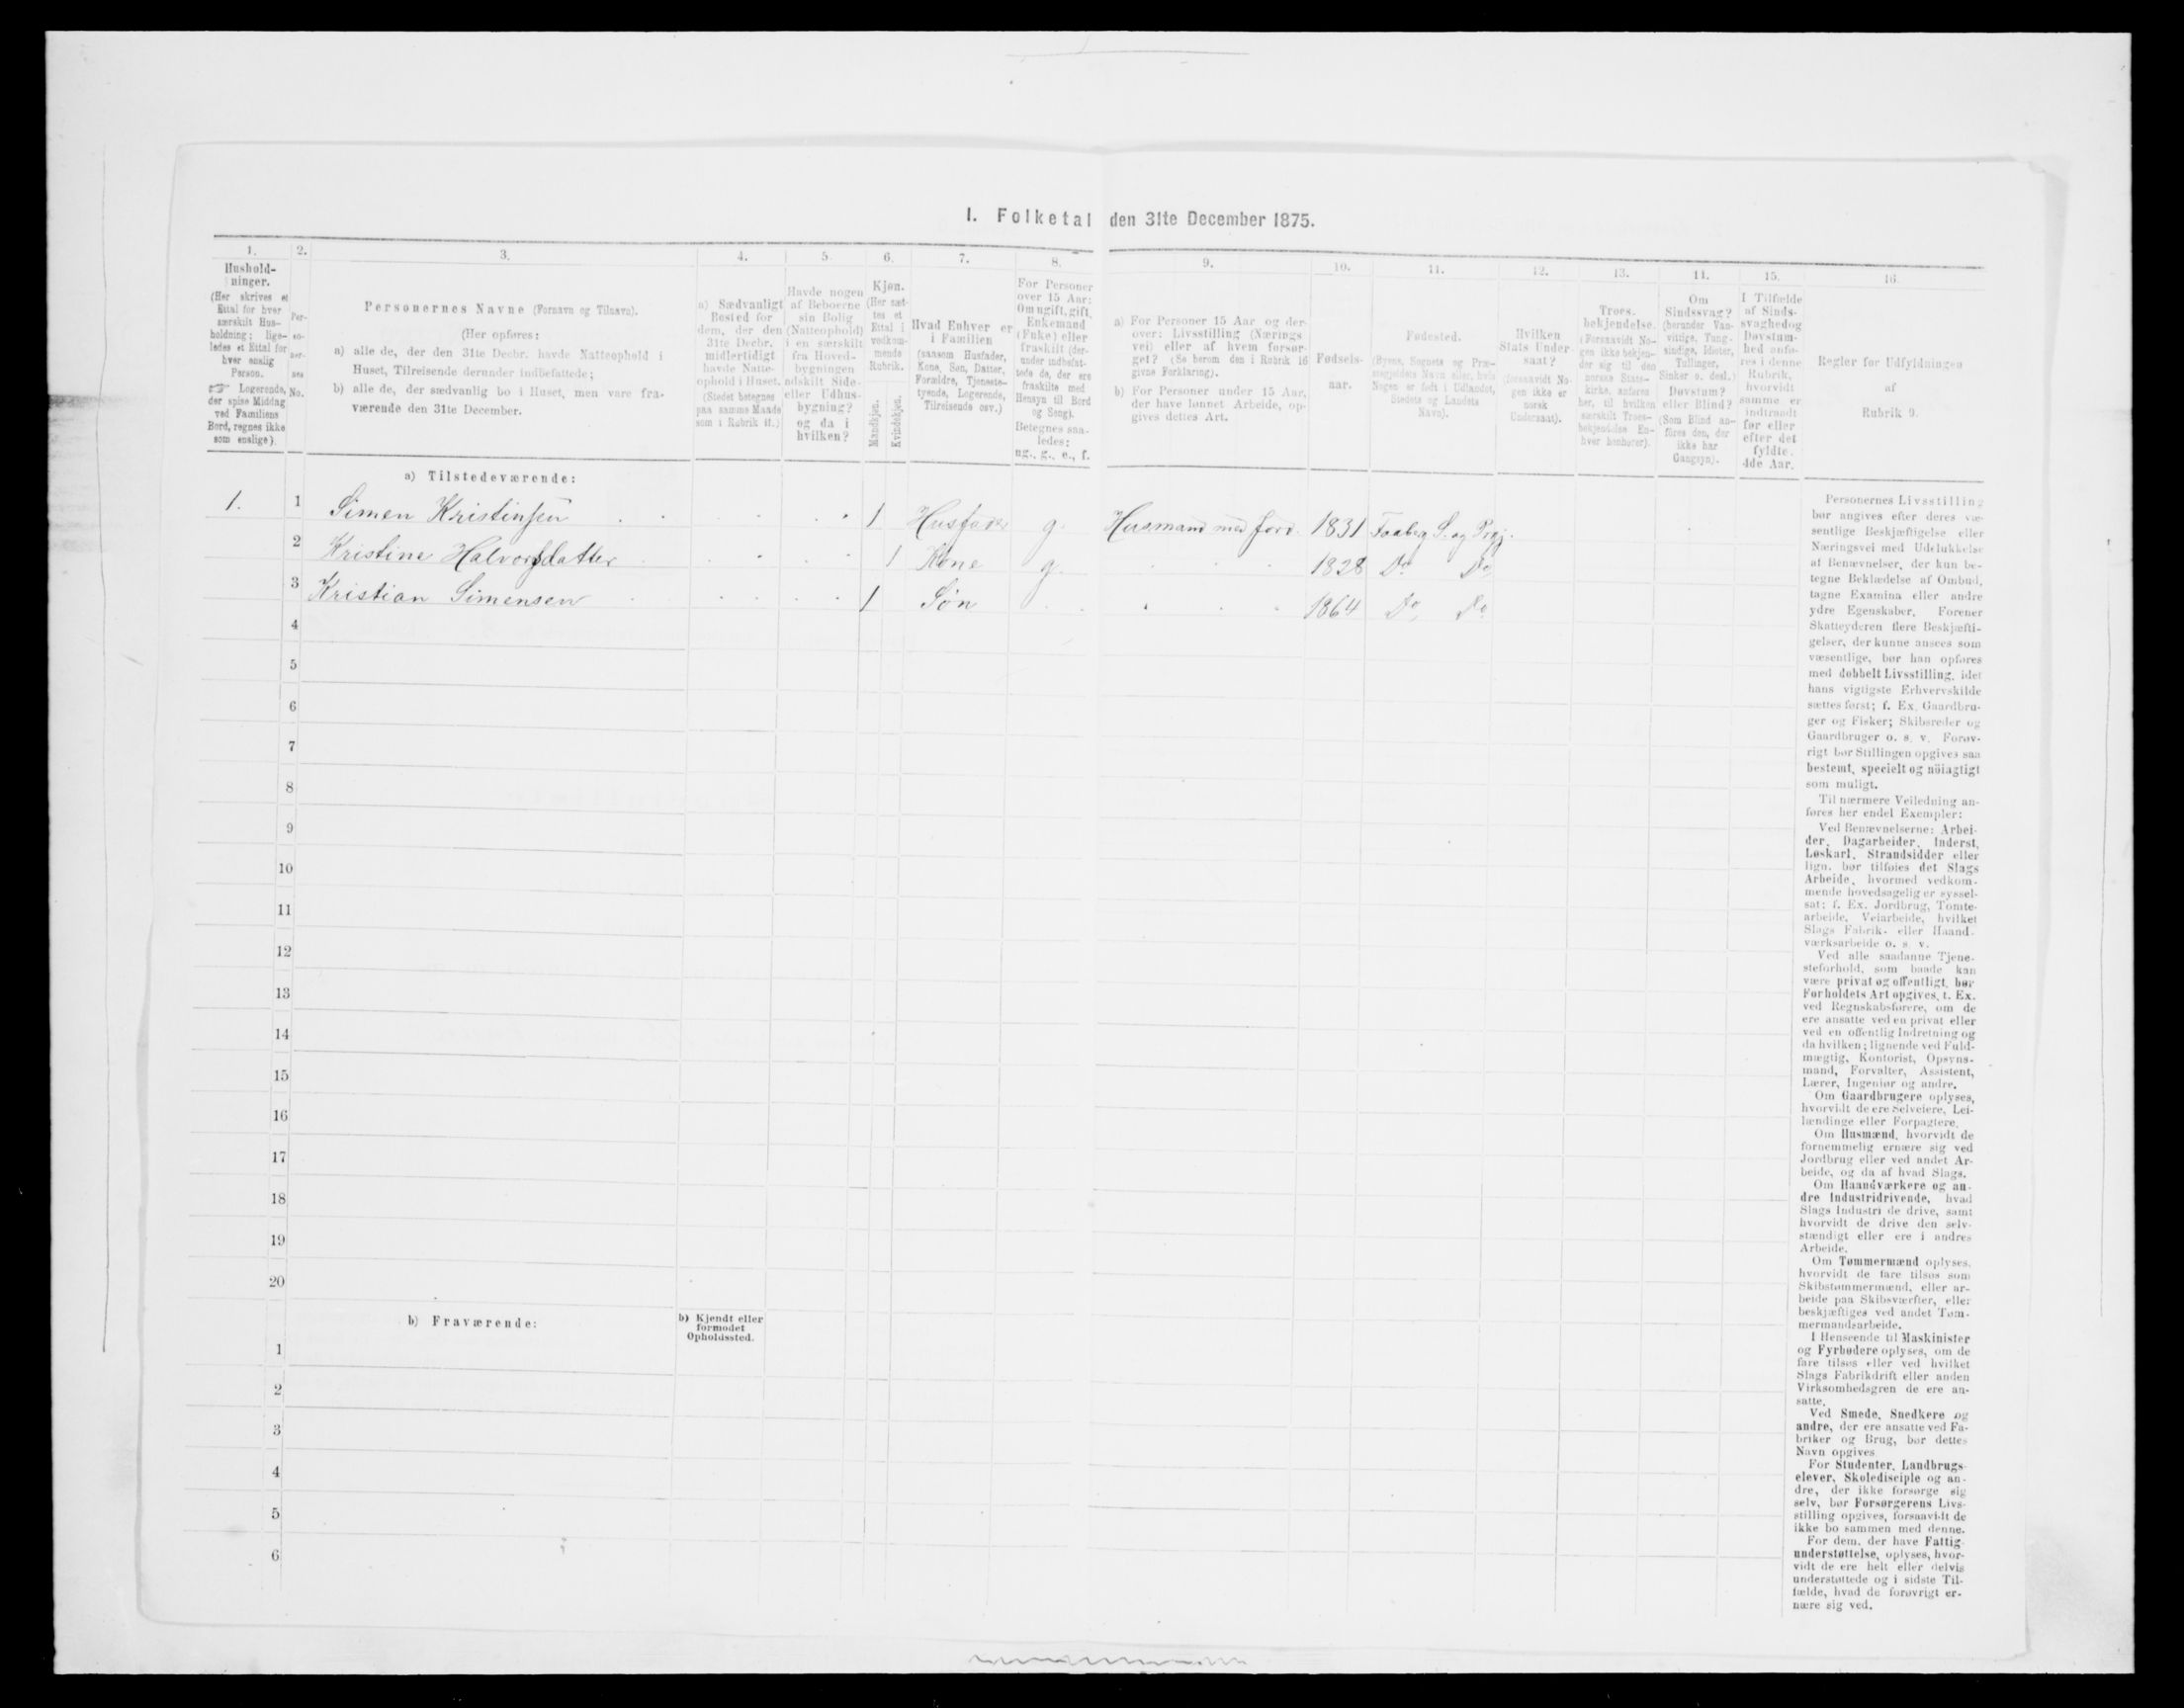 I. Folketal den 31te December 1875.
1.
2.
3.
4.
5.
6.
7.
8.
9.
10.
11.
12.
13.
14.
15.
16.
Hushold-
ninger.
(Her skrives et
Ettal for hver
særskilt Hus-
holdning; lige-
ledes et Ettal for
hver enslig
Person.
☞ Logerende,
der spise Middag
ved Familiens
Bord, regnes ikke
som enslige).
Per-
so-
ner-
nes
No.
Personernes Navne (Fornavn og Tilnavn).
(Her opføres:
a) alle de, der den 31te Decbr. havde Natteophold i
Huset, Tilreisende derunder indbefattede;
b) alle de, der sædvanlig bo i Huset, men vare fra-
værende den 31te December.
a) Sædvanligt
Bosted for
dem, der den
31te Decbr.
midlertidigt
havde Natte-
ophold i Huset.
(Stedet betegnes
paa samme Maade
som i Rubrik 11.)
Havde nogen
af Beboerne
sin Bolig
(Natteophold)
i en særskilt
fra Hoved-
bygningen
adskilt Side-
eller Udhus-
bygning?
og da i
hvilken?
Kjøn.
(Her sæt-
tes et
Ettal i
vedkom-
mende
Rubrik.
Mandkjøn.
Kvindekjøn.
Hvad Enhver er
i Familien
(saasom Husfader,
Kone, Søn, Datter,
Forældre, Tjeneste-
tyende, Logerende,
Tilreisende osv.)
For Personer
over 15 Aar:
Om ugift, gift,
Enkemand
(Enke) eller
fraskilt (der-
under indbefat-
tede de, der ere
fraskilte med
Hensyn til Bord
og Seng).
Betegnes saa-
ledes:
ug., g., e., f.
a) For Personer 15 Aar og der-
over: Livsstilling (Nærings
vei) eller af hvem forsør-
get? (Se herom den i Rubrik 16
givne Forklaring).
b) For Personer under 15 Aar,
der have lønnet Arbeide, op-
gives dettes Art.
Fødsels-
aar.
Fødested.
(Byens, Sognets og Præ-
stegjeldets Navn eller, hvis
Nogen er født i Udlandet,
Stedets og Landets
Navn).
Hvilken
Stats Under-
saat?
(forsaavidt No-
gen ikke er
norsk
Undersaat).
Troes-
bekjendelse.
(Forsaavidt No-
gen ikke bekjen-
der sig til den
norske Stats-
kirke, anføres
her, til hvilken
særskilt Troes-
bekjendelse En-
hver henhører).
Om
Sindssvag?
(herunder Van-
vittige, Tung-
sindige, Idioter,
Tullinger,
Sinker o. desl.)
Døvstum?
eller Blind?
(Som Blind an-
føres den, der
ikke har
Gangsyn).
I Tilfælde
af Sinds-
svaghed og
Døvstum-
hed anfø-
res i denne
Rubrik,
hvorvidt
samme er
indtraadt
før eller
efter det
fyldte
4de Aar.
Regler for Udfyldningen
af
Rubrik 9.
a) Tilstedeværende:
1. 1 Simen Kristinsen 1 Husfader g. Husmand med Jord. 1831 Faaberg S. og Prgj.
2 Kristine Halvorsdatter 1 Kone g. 1828 Do Do
3 Kristian Simensen 1 Søn 1864 Do Do
4
5
6
7
8
9
10
11
12
13
14
15
16
17
18
19
20
b) Fraværende:
b) Kjendt eller
formodet
Opholdssted.
1
2
3
4
5
6
Personernes Livsstilling
bør angives efter deres væ-
sentlige Beskjæftigelse eller
Næringsvei med Udelukkelse
af Benævnelser, der kun be-
tegne Beklædelse af Ombud,
tagne Examina eller andre
ydre Egenskaber. Forener
Skatteyderen flere Beskjæfti-
gelser, der kunne ansees som
væsentlige, bør han opføres
med dobbelt Livsstilling, idet
hans vigtigste Erhvervskilde
sættes først; f. Ex. Gaardbru-
ger og Fisker; Skibsreder og
Gaardbruger o. s. v. Forøv-
rigt bør Stillingen opgives saa
bestemt, specielt og nöiagtigt
som muligt.
Til nærmere Veiledning an-
føres her endel Exempler:
Ved Benævnelserne: Arbei-
der, Dagarbeider, Inderst,
Løskarl, Strandsidder eller
lign. bør tilføies det Slags
Arbeide, hvormed vedkom-
mende hovedsagelig er syssel-
sat; f. Ex. Jordbrug, Tomte-
arbeide, Veiarbeide, hvilket
Slags Fabrik- eller Haand-
værksarbeide o. s. v.
Ved alle saadanne Tjene-
steforhold, som baade kan
være privat og offentligt, bør
Forholdets Art opgives, f. Ex.
ved Regnskabsførere, om de
ere ansatte ved en privat eller
ved en offentlig Indretning og
da hvilken; lignende ved Fuld-
mægtig, Kontorist, Opsyns-
mand, Forvalter, Assistent,
Lærer, Ingeniør og andre.
Om Gaardbrugere oplyses,
hvorvidt de ere Selveiere, Lei-
lændinge eller Forpagtere.
Om Husmænd, hvorvidt de
fornemmelig ernære sig ved
Jordbrug eller ved andet Ar-
beide, og da af hvad Slags.
Om Haandværkere og an-
dre Industridrivende, hvad
Slags Industri de drive, samt
hvorvidt de drive den selv-
stændigt eller ere i andres
Arbeide.
Om Tømmermænd oplyses,
hvorvidt de fare tilsøs som
Skibstømmermænd, eller ar-
beide paa Skibsværfter, eller
beskjæftiges ved andet Tøm-
mermandsarbeide.
I Henseende til Maskinister
og Fyrbødere oplyses, om de
fare tilsøs eller ved hvilket
Slags Fabrikdrift eller anden
Virksomhedsgren de ere an-
satte.
Ved Smede, Snedkere og
andre, der ere ansatte ved Fa-
briker og Brug, bør dettes
Navn opgives
For Studenter, Landbrugs-
elever, Skoledisciple og an-
dre, der ikke forsørge sig
selv, bør Forsørgerens Livs-
stilling opgives, forsaavidt de
ikke bo sammen med denne.
For dem, der have Fattig-
understøttelse, oplyses, hvor-
vidt de ere helt eller delvis
understøttede og i sidste Til-
fælde, hvad de forøvrigt er-
nære sig ved.